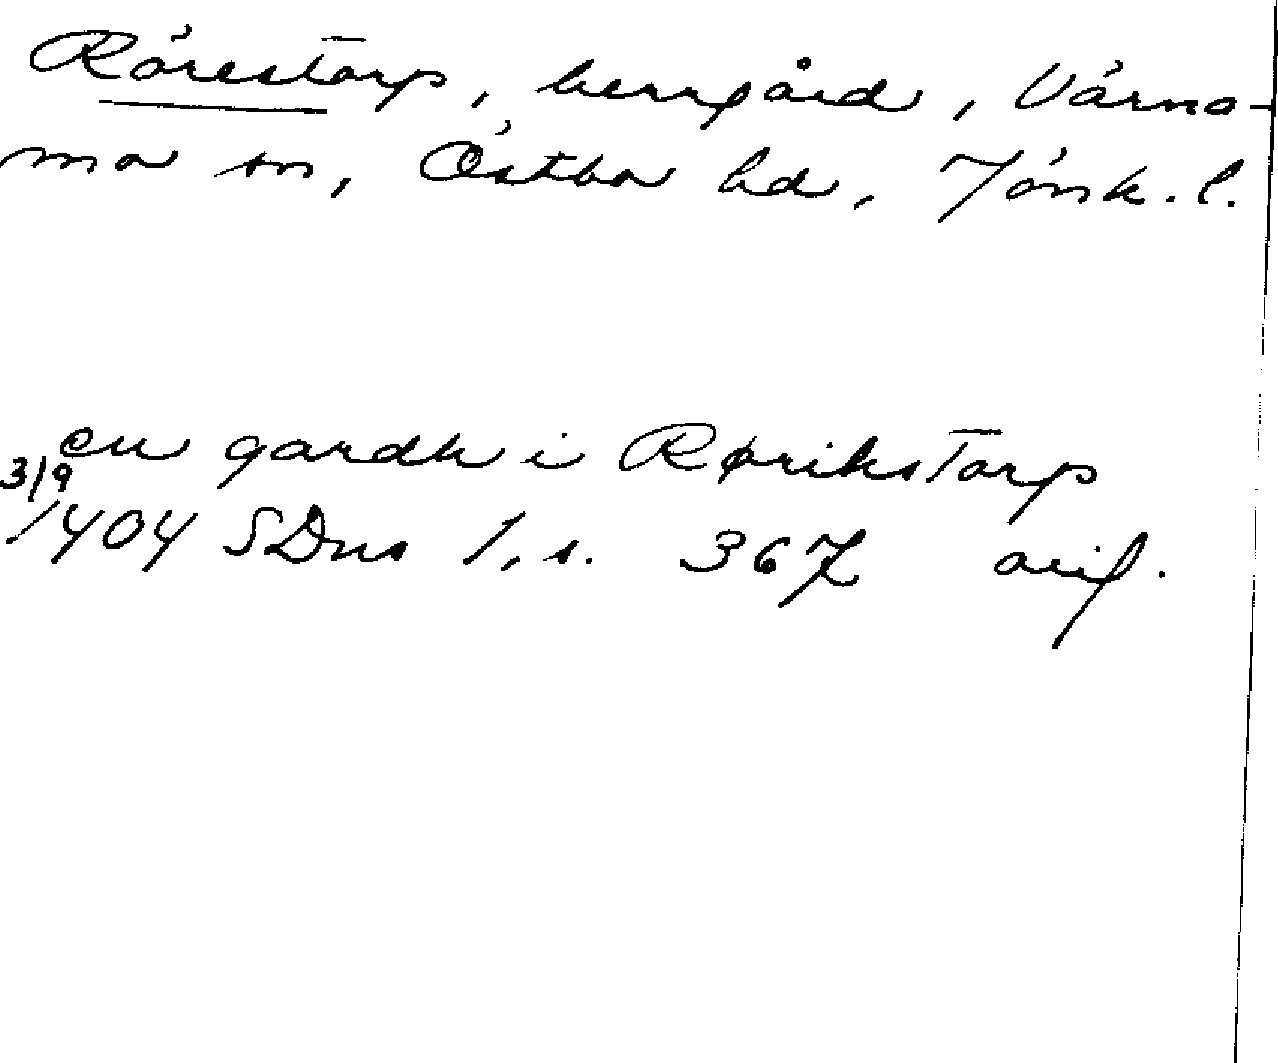 Rörestorp, herrgård, Värna-
mo sn, Östbo hd, Jönk. l.
en gardh i Rørikstorp
3/9
1404 SDns 1, s. 367 orig.